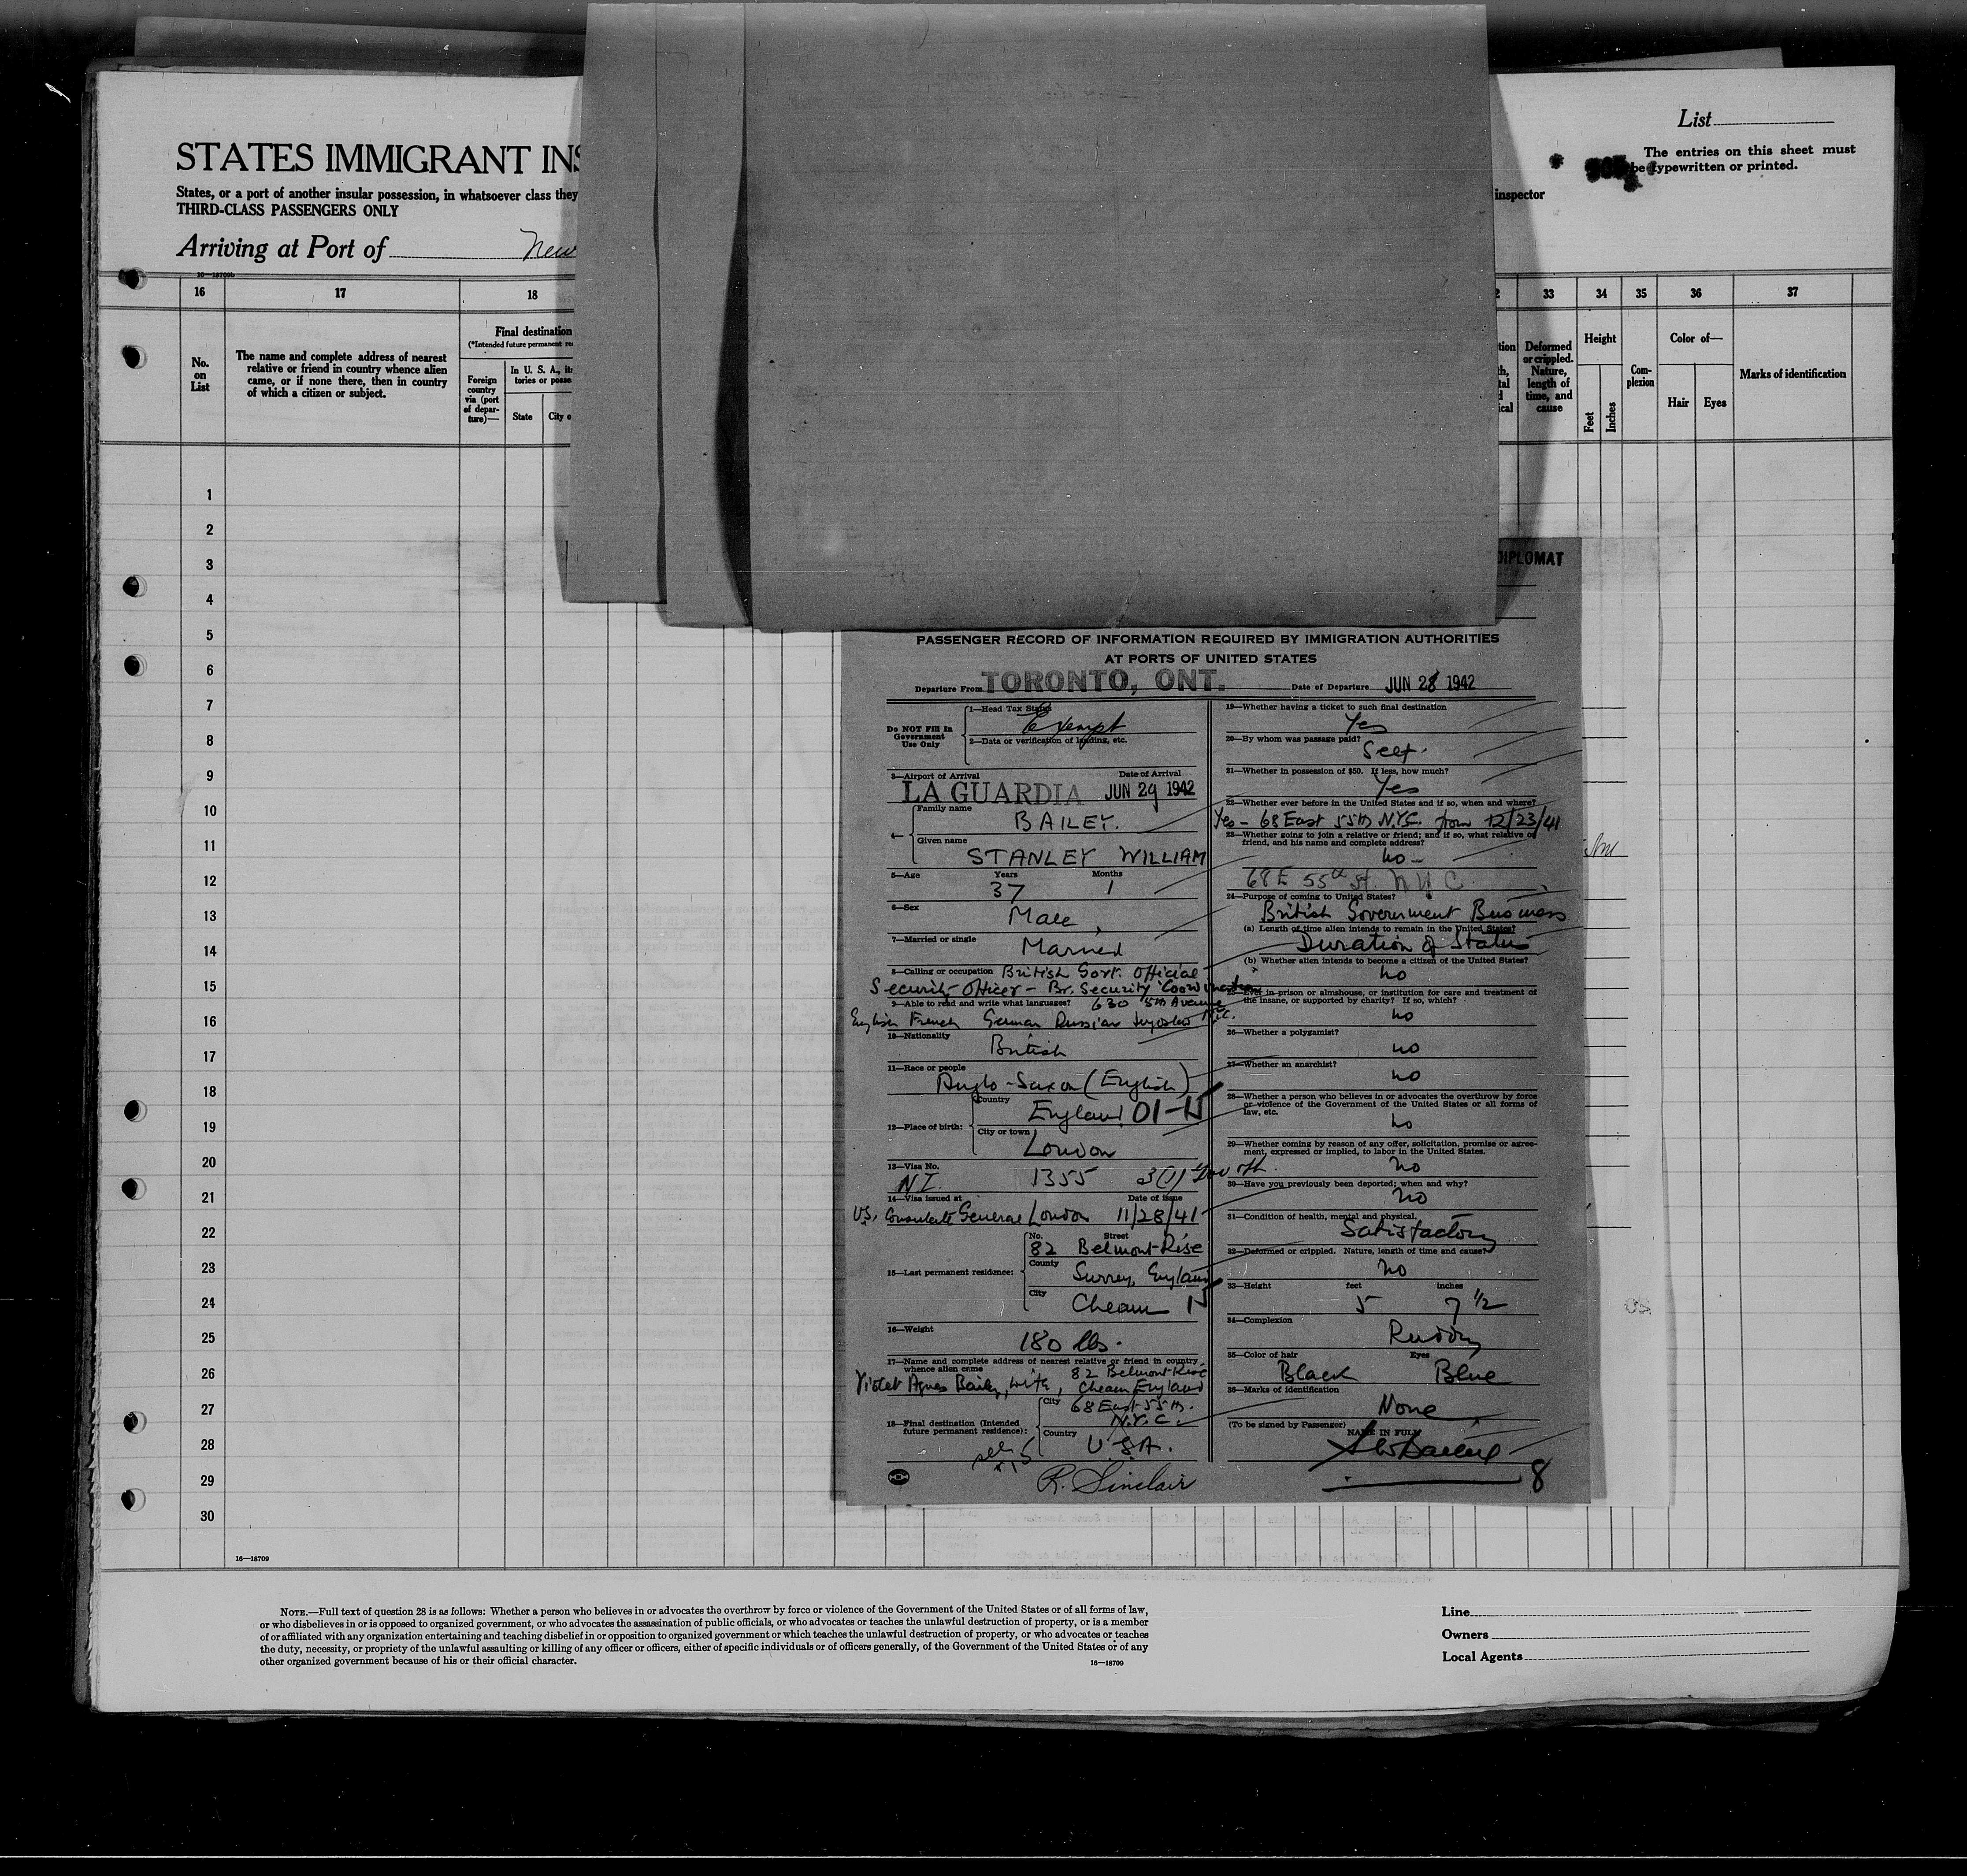 STATES IMMIGRANT INS
States, or a port of another insular possession, in whatsoever class they
THIRD-CLASS PASSENGERS ONLY
Arriving at Port of New
16—18709b
List
The entries on this sheet must
be typewritten or printed.
inspector
16 17 18 33 34 35 36 37
No. on List
The name and complete address of nearest
relative or friend in country whence alien
came, or if none there, then in country
of which a citizen or subject.
Final destination
(*Intended future permanent
Foreign country via (port of departure)—
In U. S. A.,
State
Deformed or crippled. Nature, length of time, and cause
Height
Feet
Inches
Com-
plexion
Color of—
Hair
Eyes
Marks of identification
1
2
3
4
5
6
7
8
9
10
11
12
13
14
15
16
17
18
19
20
21
22
23
24
25
26
27
28
29
30
16—18709
DIPLOMAT
PASSENGER RECORD OF INFORMATION REQUIRED BY IMMIGRATION AUTHORITIES
AT PORTS OF UNITED STATES
Departure From TORONTO, ONT. Date of Departure JUN 28 1942
Do NOT Fill In
Government
Use Only
1—Head Tax Status
Exempt
2—Data or verification of landing, etc.
3—Airport of Arrival Date of Arrival
LA GUARDIA JUN 29 1942
4— Family name
BAILEY.
Given name
STANLEY WILLIAM
5—Age Years Months
37 1
6—Sex
Male
7—Married or single
Married
8—Calling or occupation British Govt. Official
Security Officer – Br. Security Coordination
9—Able to read and write what languages? 630 5th Avenue
English French German Russian
10—Nationality
British
11—Race or people
Anglo-Saxon (English)
12—Place of birth: Country
England 01-
City or town
London
13—Visa No.
N.I. 1355 3(1)
14—Visa issued at Date of issue
U.S. Consulate General London 11/28/41
15—Last permanent residence: No. Street
82 Belmont Rise
County
Surrey, England
City
Cheam
16—Weight
180 lbs.
17—Name and complete address of nearest relative or friend in country
whence alien came 82 Belmont Rise
Violet Agnes Bailey, wife, Cheam England
18—Final destination (Intended
future permanent residence): City 68 East 55th.
N.Y.C.
Country
U.S.A.
R. Sinclair
19—Whether having a ticket to such final destination
Yes
20—By whom was passage paid?
Self.
21—Whether in possession of $50. If less, how much?
Yes
22—Whether ever before in the United States and if so, when and where?
Yes – 68 East 55th N.Y.C. from 12/23/41
23—Whether going to join a relative or friend; and if so, what relative or
friend, and his name and complete address?
no –
68 E 55th St. N Y C.
24—Purpose of coming to United States?
British Government Business
(a) Length of time alien intends to remain in the United States?
Duration of Status
(b) Whether alien intends to become a citizen of the United States?
no
25—Ever in prison or almshouse, or institution for care and treatment of
the insane, or supported by charity? If so, which?
no
26—Whether a polygamist?
no
27—Whether an anarchist?
no
28—Whether a person who believes in or advocates the overthrow by force
or violence of the Government of the United States or all forms of
law, etc.
no
29—Whether coming by reason of any offer, solicitation, promise or agree-
ment, expressed or implied, to labor in the United States.
no
30—Have you previously been deported; when and why?
no
31—Condition of health, mental and physical.
Satisfactory
32—Deformed or crippled. Nature, length of time and cause?
no
33—Height feet inches
5 7 1/2
34—Complexion
Ruddy
35—Color of hair Eyes
Black Blue
36—Marks of identification
None
(To be signed by Passenger) NAME IN FULL
8
NOTE.—Full text of question 28 is as follows: Whether a person who believes in or advocates the overthrow by force or violence of the Government of the United States or of all forms of law,
or who disbelieves in or is opposed to organized government, or who advocates the assassination of public officials, or who advocates or teaches the unlawful destruction of property, or is a member
of or affiliated with any organization entertaining and teaching disbelief in or opposition to organized government or which teaches the unlawful destruction of property, or who advocates or teaches
the duty, necessity, or propriety of the unlawful assaulting or killing of any officer or officers, either of specific individuals or of officers generally, of the Government of the United States or of any
other organized government because of his or their official character.
16—18709
Line
Owners
Local Agents